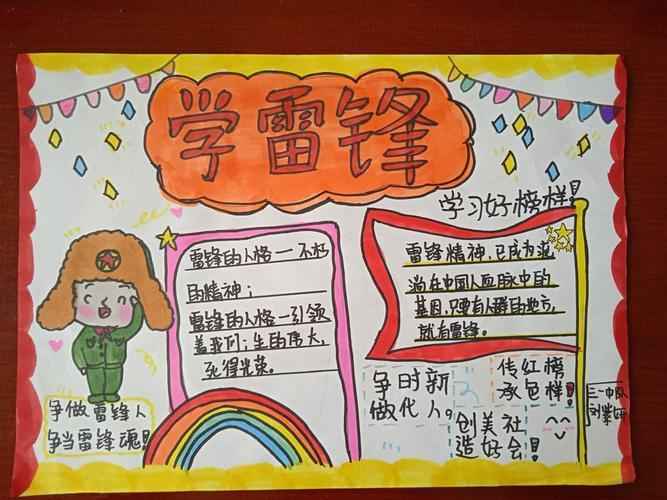 学雷锋
学习好榜样！
雷锋的人格—不朽
的精神；
雷锋的人格—引领
盖我们；生的伟大，
死得光荣。
雷锋精神，已成为流
淌在中国人血脉中的
基因，只要有人群的地方，
就有雷锋。
争做雷锋人
争当雷锋魂！
争做时代新人。
传承红色榜样！
创造美好社会！
三一中队